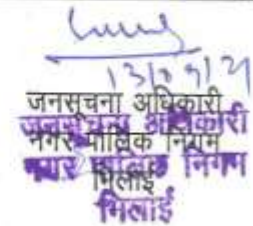 जनसूचना अधिकारी
जनसूचना अधिकारी
नगर पालिक निगम
नगर पालिक निगम
भिलाई
भिलाई